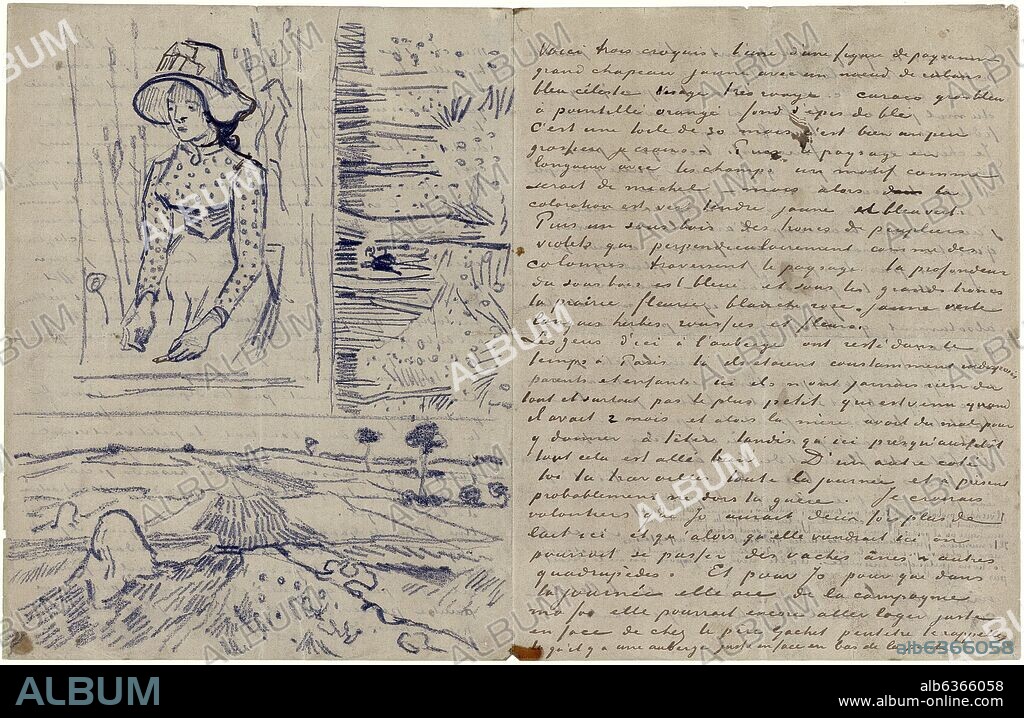 Voici trois croquis – l'une d'une figure de paysanne
grand chapeau jaune avec un nœud de rubans
bleu céleste visage très rouge. caraco gros bleu
à pointillé orangé fond d'épis de blé
C'est une toile de 30 mais c'est bien un peu
grossier je crains. Puis le paysage en
longueur avec les champs un motif comme
serait de michel – mais alors la
coloration est vert tendre jaune et bleu vert.
Puis un sous bois des troncs de peupliers
violets qui perpendiculairement comme des
colonnes traversent le paysage la profondeur
du sous bois est bleue et sous les grands troncs
la prairie fleurie blanche rose jaune verte
longues herbes roussies et fleurs.
Les gens d'ici à l'auberge ont resté dans le
temps à Paris là étaient constamment indisposés
parents et enfants ici ils n'ont jamais rien du
tout et surtout pas le plus petit qui est venu quand
il avait 2 mois et alors la mère avait du mal pour
y donner à téter, tandis qu'ici presqu'aussitôt
tout cela est allé bien D'un autre coté
toi tu travailles toute la journée et à présent
probablement dors tu guère. Je croirais
volontiers que Jo aurait deux fois plus de
lait ici et qu'alors qu'elle viendrait ici on
pourrait se passer des vaches ânes & autres
quadrupèdes. Et pour Jo pour que dans
la journée elle ait de la compagnie
ma foi elle pourrait encore aller loger juste
en face de chez le père Gachet peutêtre te rappelles
tu qu'il y a une auberge juste en face en bas de la
ALBUM
alb6366058
ALBUM
alb6366058
www.album-online.com